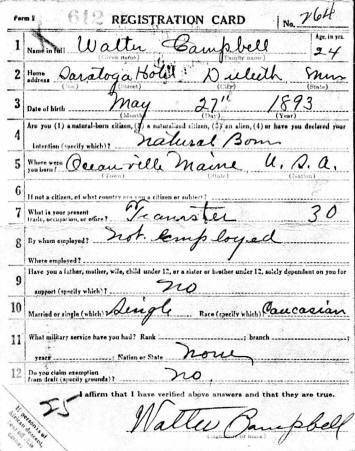 Form 1 612 REGISTRATION CARD No. 264
1 Name in full Walter Campbell Age, in yrs. 24
(Given name) (Family name)
2 Home address Saratoga Hotel Duluth Minn
(No.) (Street) (City) (State)
3 Date of birth May 27" 1893
(Month) (Day) (Year)
4 Are you (1) a natural-born citizen, (2) a naturalized citizen, (3) an alien, (4) or have you declared your
intention (specify which)? Natural Born
5 Where were you born? Oceanville Maine U.S.A.
(Town) (State) (Nation)
6 If not a citizen, of what country are you a citizen or subject?
7 What is your present trade, occupation, or office? Teamster 30
8 By whom employed? Not Employed
Where employed?
9 Have you a father, mother, wife, child under 12, or a sister or brother under 12, solely dependent on you for
support (specify which)? No
10 Married or single (which)? Single Race (specify which)? Caucasian
11 What military service have you had? Rank branch
years Nation or State None
12 Do you claim exemption from draft (specify grounds)? No.
I affirm that I have verified above answers and that they are true.
Walter Campbell
If person is of African descent, tear off this corner